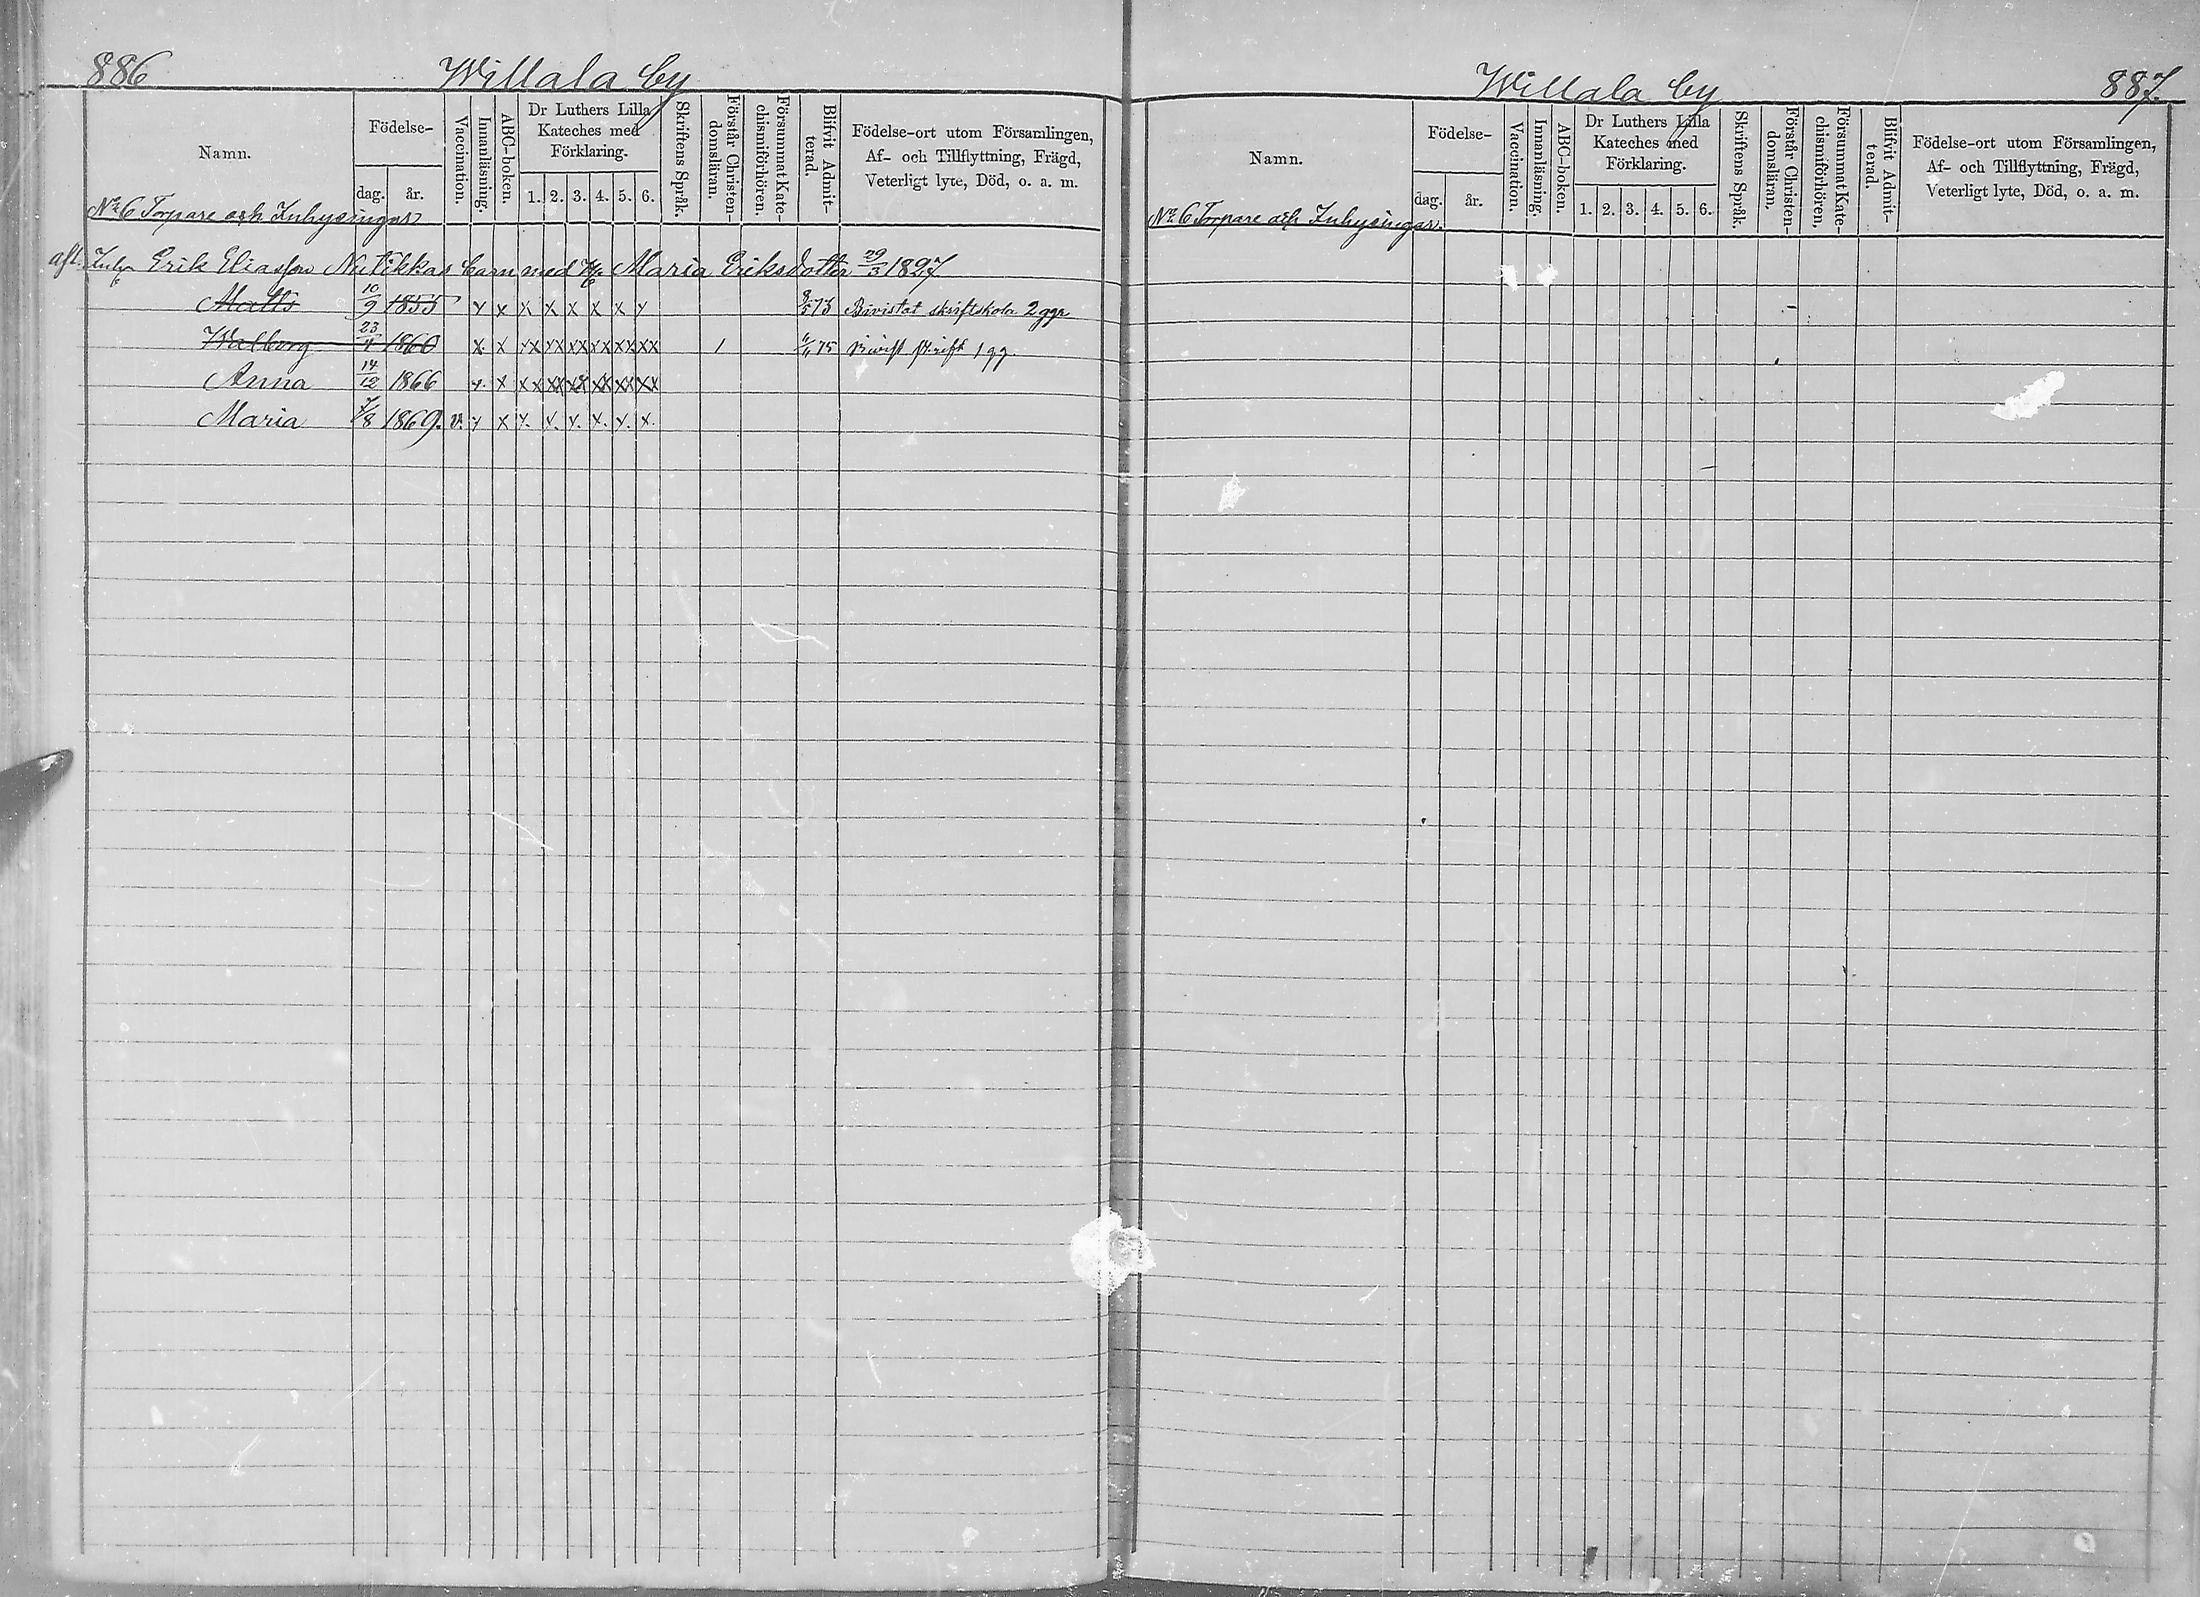 886
Willala by
Namn.
Födelse-
dag.
år.
Vaccination.
Innanläsning.
ABC-boken.
Dr Luthers Lilla
Kateches med
Förklaring.
1. 2. 3. 4. 5. 6.
Skriftens Språk.
Förstår Christen-
domsläran.
Försummat Kate-
chismiförhören.
Blifvit Admit-
terad.
Födelse-ort utom Församlingen,
Af- och Tillflyttning, Frägd,
Veterligt lyte, Död, o. a. m.
No 6 Torpare och Inhysingar
afl. Inhs Erik Eliasson barn med Maria Eriksdotter 29/3 1827
Matts 10/9 1855 x x x x x x x x 73 Bivistat skriftskola 2 ggr
Walborg 23/4 1860 x x xx xx xx xx xx xx 1 75 skrift 1 gg.
Anna 14/12 1866 x x xx xx xx xx xx xx
Maria 7/8 1869. v. x x x. x. x. x. x. x.
Willala by
887.
Namn.
Födelse-
dag.
år.
Vaccination.
Innanläsning.
ABC-boken.
Dr Luthers Lilla
Kateches med
Förklaring.
1. 2. 3. 4. 5. 6.
Skriftens Språk.
Förstår Christen-
domsläran.
Försummat Kate-
chismiförhören,
Blifvit Admit-
terad.
Födelse-ort utom Församlingen,
Af- och Tillflyttning, Frägd,
Veterligt lyte, Död, o. a. m.
No 6 Torpare och Inhysingar.